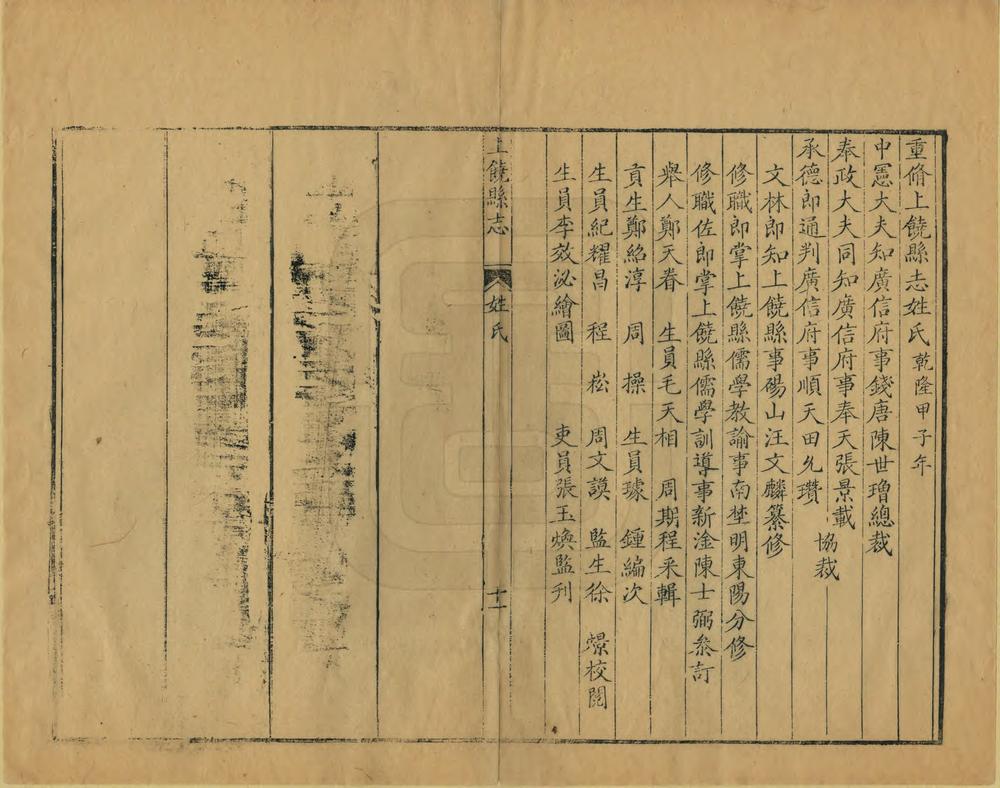 重脩上饒縣志姓氏 乾隆甲子年
中憲大夫知廣信府事錢唐陳世璔總裁
奉政大夫同知廣信府事奉天張景載
承德郎通判廣信府事順天田允瓚
協裁
文林郎知上饒縣事碭山汪文麟纂修
修職郎掌上饒縣儒學教諭事南埜明東陽分修
修職佐郎掌上饒縣儒學訓導事新淦陳士弼叅訂
舉人鄭天眷 生員毛天相 周期程采輯
貢生鄭紹淳 周 操 生員璩 鍾編次
生員紀耀昌 程 崧 周文謨 監生徐 㬌校閱
生員李效泌繪圖 吏員張玉煥監刋
上饒縣志 姓氏 十一